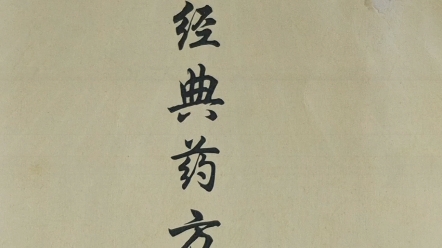 经典药方